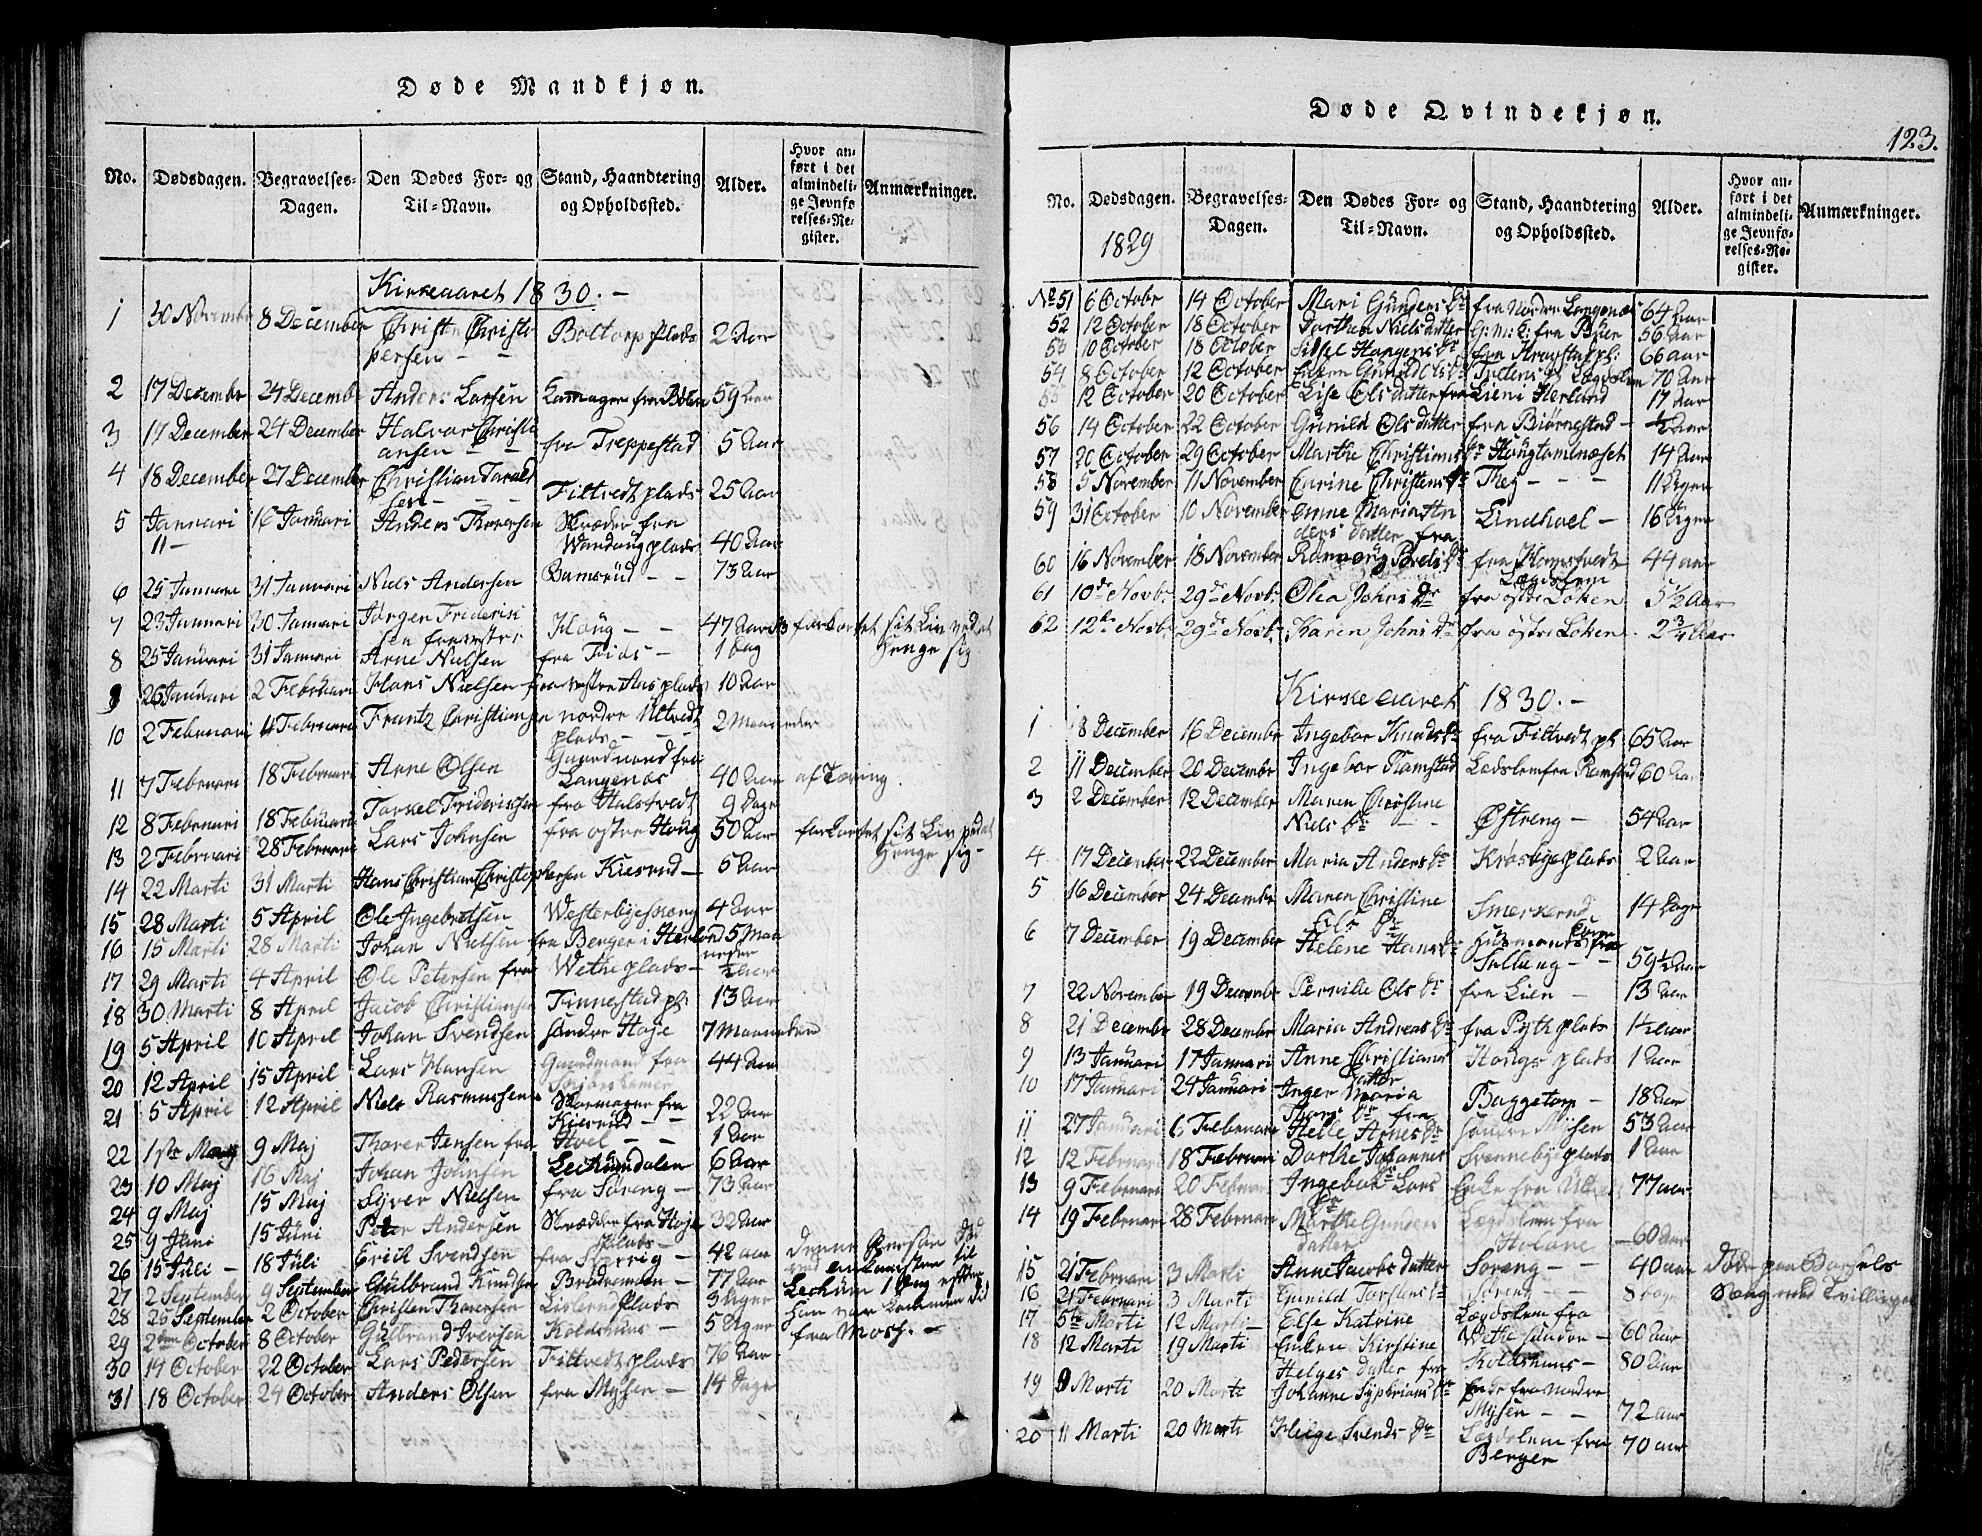 Døde Mandkjøn.
No. Dødsdagen. Begravelses-Dagen. Den Dødes For- og Til-Navn. Stand, Haandtering og Opholdssted. Alder. Hvor anført i det almindelige Jevnførelses-Register. Anmærkninger.
Kirkeaaret 1830. -
1 30 November 8 December Christen Christopersen - - Boltorp plads 2 Aar
2 17 December 24 December Anders Larsen 59 Aar
3 17 December 24 December Halvor Christiansen - - fra Treppestad 5 Aar
4 18 December 27 December Christian Taraldsen - - Filtvedt plads 25 Aar
5 Januari 11 - 16 Januari Anders Thoresen Skræder fra plads 40 Aar
6 25 Januari 31 Januari Niels Andersen Bamsrud - - 73 Aar
7 23 Januari 30 Januari Jørgen Friderichsen fra vestre Houg - - 47 Aar forkortet sit Liv ved at Henge sig
8 25 Januari 31 Januari Arne Nielsen fra - 1 Dag
9 26 Januari 2 Februari Hans Nielsen fra vestre plads 10 Aar
10 2 Februari 14 Februari Frantz Christiansen nordre plads - - 2 Maaneder
11 7 Februari 18 Februari Arne Olsen Gaardmand fra Langenæs 40 Aar af Tæring.
12 8 Februari 18 Februari Torkel Friderichsen fra Halstvedt 9 Dage
13 2 Februari 28 Februari Lars Johnsen fra østre Houg 50 Aar forkortet sit Liv ved at Henge sig -
14 22 Marti 31 Marti Hans Christian Christophersen Kiesrud - 5 Aar
15 28 Marti 5 April Ole Ingebretsen Westerbye 4 Aar
16 15 Marti 28 Marti Johan Nielsen fra Berger i Herland 5 Maaneder
17 29 Marti 4 April Ole Petersen fra Wethe plads - ½ Aar
18 30 Marti 8 April Jacob Christiansen Finnestad pl: 13 Aar
19 5 April 10 April Johan Svendsen søndre Hoje 7 Maaneder
20 12 April 15 April Lars Hansen Gaardmand fra 44 Aar
21 5 April 12 April Niels Rasmussen Skomager fra Kiesrud - 22 Aar
22 1ste Maj 9 Maj Thorer Jensen fra Hoel - - 1 Aar
23 10 Maj 16 Maj Johan Johnsen Lechumdalen 6 Aar
24 9 Maj 15 Maj Syver Nielsen fra Søreng - 73 Aar
25 9 Juni 15 Juni Peter Andersen Skrædder fra Hoje plads - 32 Aar
26 15 Juli - 18 Juli Erich Svendsen fra 42 Aar Denne Person død
27 2 September 9 September Gulbrand Knudsen 77 Aar Lechum 1 Dag efter
28 26 September 2 October Christen Thoresen Lislerud plads 3 Uger han var kommen did
29 2den October 8 October Gulbrand Iversen Koldshuus - 5 Uger fra Moss. -
30 14 October 22 October Lars Pedersen Filtvedt plads 76 Aar
31 18 October 24 October Anders Olsen fra Mysen - 14 Dage
Døde Qvindekjøn.
123.
No. Dødsdagen. Begravelses-Dagen. Den Dødes For- og Til-Navn. Stand, Haandtering og Opholdssted. Alder. Hvor anført i det almindelige Jevnførelses-Register. Anmærkninger.
1829
No 51 6 October 14 October Mari Gunders Dr fra Nordre Langenæs 64 Aar
52 12 October 18 October Dorthea Nielsdatter G: M: E: fra Buer 56 Aar
53 10 October 18 October Sissel Haagens Dr fra pl: 66 Aar
54 8 October 12 October Enken Gunild Ols Dr Lægdslem 70 Aar
55 12 October 20 October Lise Olsdatter fra Lien i Herland 17 Aar
56 14 October 22 October Gunild Olsdatter fra Biørnestad - ½ Aar
57 20 October 29 October Marthe Christians Dr 14 Aar
58 5 November 11 November Carine Christens Dr - - - 11 Uger
59 31 October 10 November Anne Maria Anders datter fra Lindhoel - 16 Uger
60 16 November 18 November Rønnoug Povels Dr fra Lægdslem 44 aar
61 10de Novbr. 29de Novbr. Olia Johns Dr fra østre Løken 5½ Aar
62 12te Novbr. 29de Novbr. Karen Johns Dr fra østre Løken. 2¾ Aar
Kirkeaaret 1830. -
1 8 December 16 December Ingebor Knuds Dr fra Filtvedt pl 65 Aar
2 11 December 20 December Ingebor Ramstad Ledslem fra Ramstad 60 Aar
3 2 December 12 December Maren Christine Niels Dr - Østreng - 54 Aar
4 17 December 22 December Maria Anders Dr Krosbye plads 2 Aar
5 16 December 24 December Maren Christine Ols Dr Smerkerud 14 Dage
6 7 December 19 December Helene Hans Dr Husmands Kone fra - - 59½ Aar
7 22 November 19 December Pernille Ols Dr fra Lien - 13 Aar
8 21 December 28 December Maria Andreas Dr fra plads 1½ Aar
9 13 Januari 17 Januari Anne Christians datter Hougs plads 1 Aar
10 17 Januari 24 Januari Inger Maria Thors Dr fra Baggetorp - 18 Aar
11 27 Januari 6 Februari Helle Arnes Dr søndre Mysen 53 Aar
12 12 Februari 18 Februari Dorthe Johannes Dr Svennebye plads 1 Aar
13 9 Februari 20 Februari Ingebor Lars Dr Enke fra 77 aar
14 19 Februari 28 Februari Marthe Gunders datter Lægdslem fra - 60 Aar
15 21 Februari 3 Marti Anne Jacobsdatter Søreng - - 40 aar Døde paa Barsels
16 21 Februari 3 Marti Gunild Torstens Dr Søreng - - 8 Dage Seng med Tvillinger
17 5te Marti 12 Marti - Else Katrine Lægdslem fra Wethe søndre - 60 Aar
18 12 Marti 19 Marti Enken Kirstine Helges datter fra Koldshuus - 80 Aar
19 9 Marti 20 Marti Johanne Syprians Dr Enke fra Nordre Mysen - - 72 Aar
20 11 Marti 20 Marti Helge Svends Dr Lægdslem fra Berger 70 aar